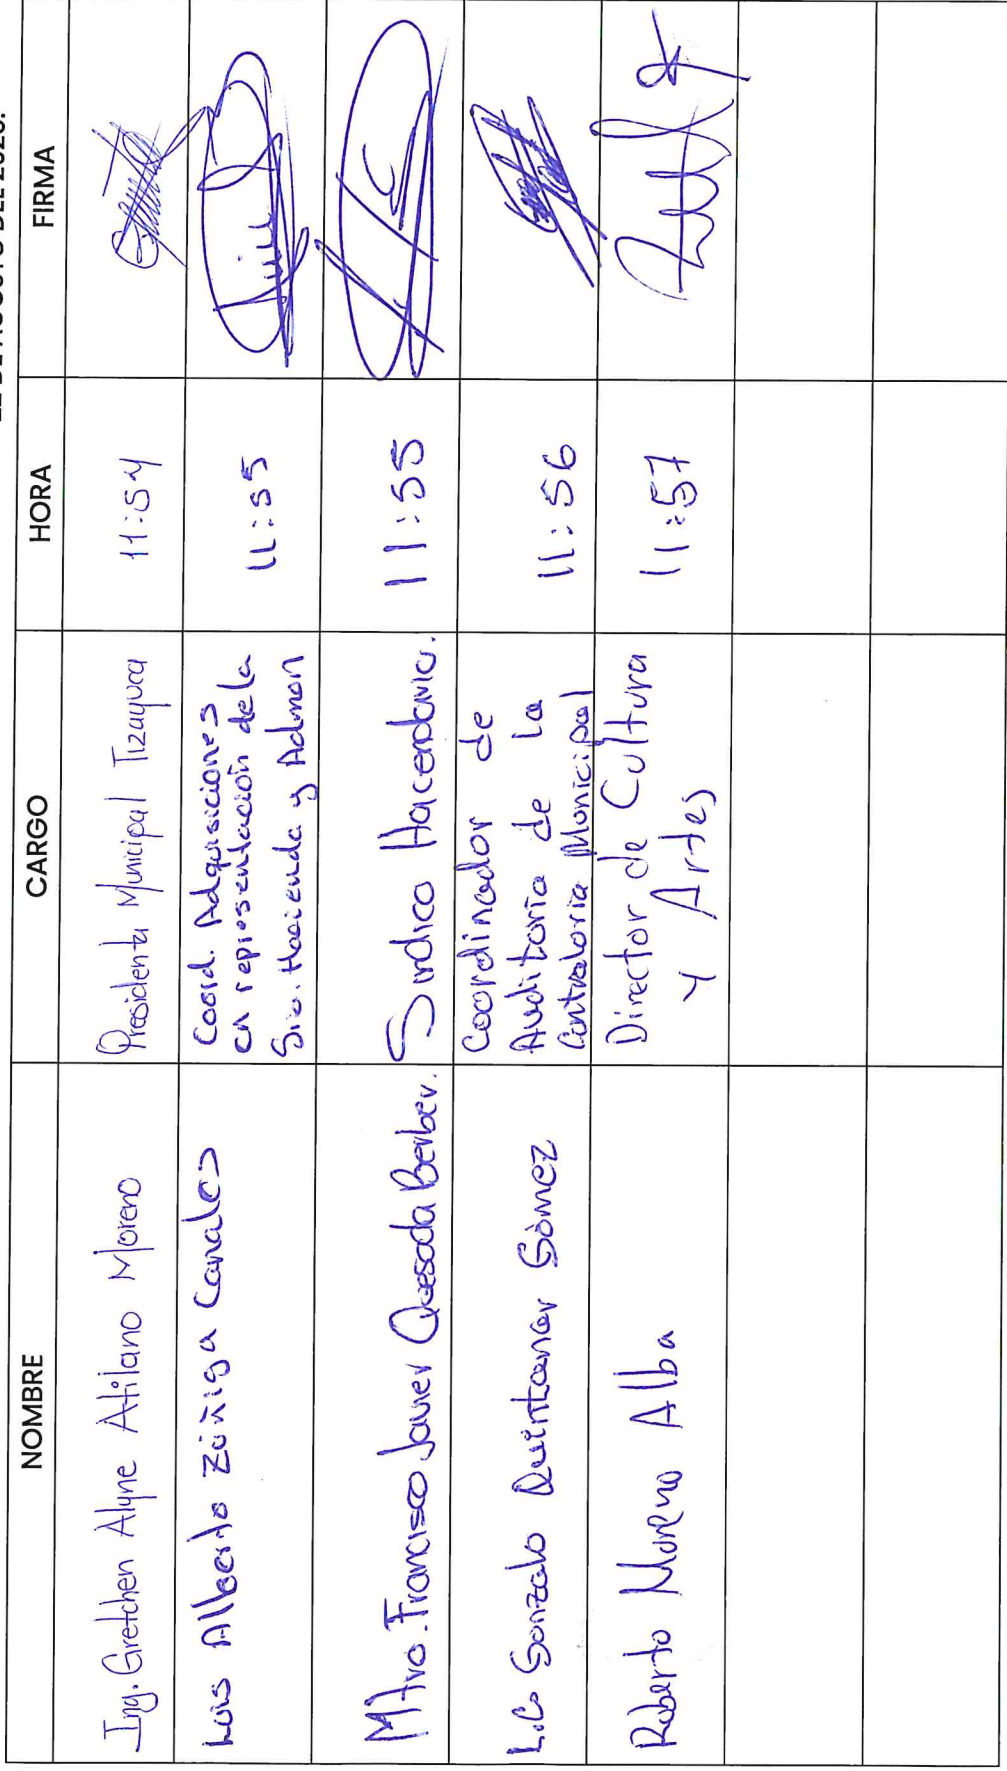 NOMBRE CARGO HORA FIRMA
Ing. Gretchen Alyne Atilano Moreno Presidenta Municipal Tizayuca 11:54
Luis Alberto Zúñiga Canales Coord. Adquisiciones
en representación de la
Sria. Hacienda y Admon 11:55
Mtro. Francisco Javier Quesada Berber. Sindico Hacendario. 11:55
L.C. Gonzalo Quintanar Gómez Coordinador de
Auditoria de la
Contraloria Municipal 11:56
Roberto Moreno Alba Director de Cultura
y Artes 11:57